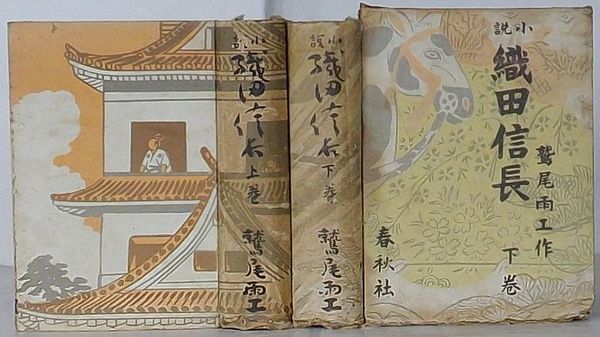 小説
織田信長
上巻
鷲尾雨工
小説
織田信長
下巻
鷲尾雨工
小説
織田信長
鷲尾雨工作
下巻
春秋社